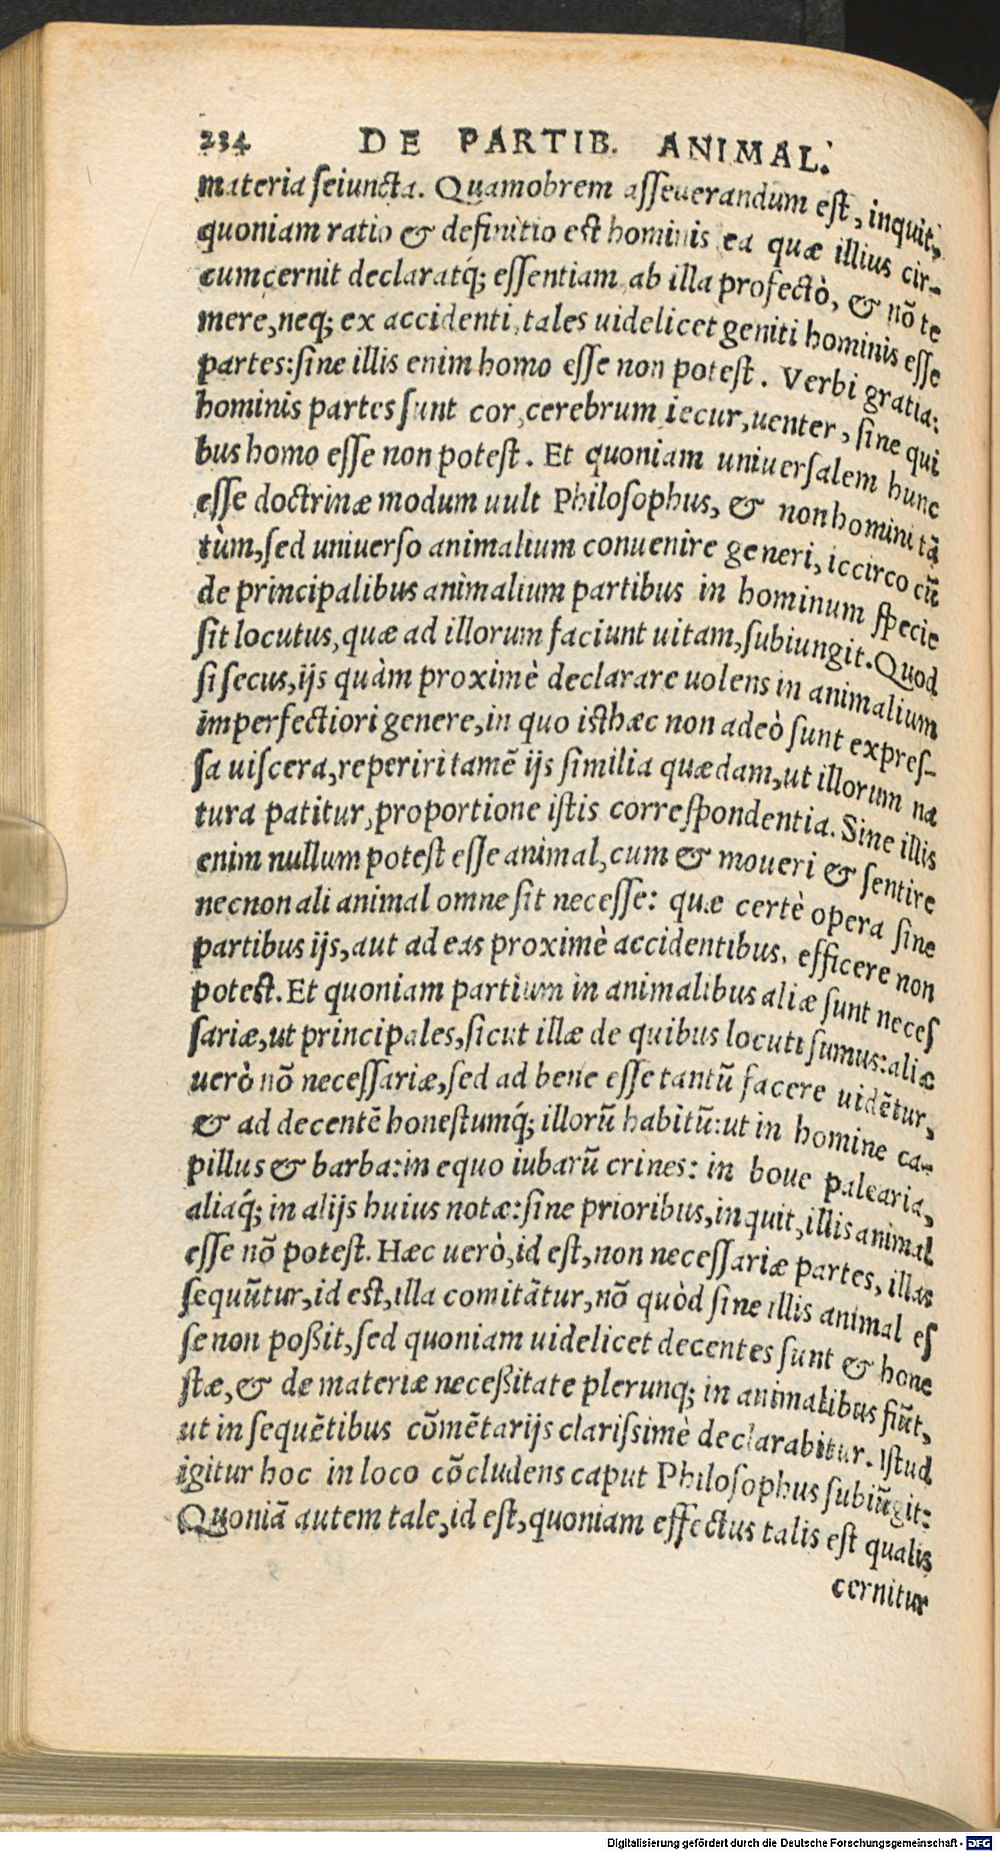 234 DE PARTIB. ANIMAL.
materia seiuncta. Quamobrem asseuerandum est, inquit,
quoniam ratio & definitio est hominis ea quæ illius cir-
cumcernit declaratq́; essentiam, ab illa profectò, & nõ te
mere, neq; ex accidenti, tales uidelicet geniti hominis esse
partes: sine illis enim homo esse non potest. Verbi gratia:
hominis partes sunt cor, cerebrum iecur, uenter, sine qui
bus homo esse non potest. Et quoniam uniuersalem hunc
esse doctrinæ modum uult Philosophus, & non homini tã
tùm, sed uniuerso animalium conuenire generi, iccirco cũ
de principalibus animalium partibus in hominum specie
sit locutus, quæ ad illorum faciunt uitam, subiungit. Quod
si secus, ijs quàm proximè declarare uolens in animalium
imperfectiori genere, in quo isthæc non adeò sunt expres-
sa uiscera, reperiri tamẽ ijs similia quædam, ut illorum na
tura patitur, proportione istis correspondentia. Sine illis
enim nullum potest esse animal, cum & moueri & sentire
necnon ali animal omne sit necesse: quæ certè opera sine
partibus ijs, aut ad eas proximè accidentibus, efficere non
potest. Et quoniam partium in animalibus aliæ sunt neces
sariæ, ut principales, sicut illæ de quibus locuti sumus: aliæ
uerò nõ necessariæ, sed ad bene esse tantũ facere uidẽtur,
& ad decentẽ honestumq́; illorũ habitũ: ut in homine ca-
pillus & barba: in equo iubarũ crines: in boue palearia,
aliaq́; in alijs huius notæ: sine prioribus, inquit, illis animal
esse nõ potest. Hæc uerò, id est, non necessariæ partes, illas
sequũtur, id est, illa comitãtur, nõ quòd sine illis animal es
se non poßit, sed quoniam uidelicet decentes sunt & hone
stæ, & de materiæ neceßitate plerunq; in animalibus fiũt,
ut in sequẽtibus cõmẽtarijs clarissimè declarabitur. Istud
igitur hoc in loco cõcludens caput Philosophus subiũgit:
Quoniã autem tale, id est, quoniam effectus talis est qualis
cernitur
Digitalisierung gefördert durch die Deutsche Forschungsgemeinschaft - DFG